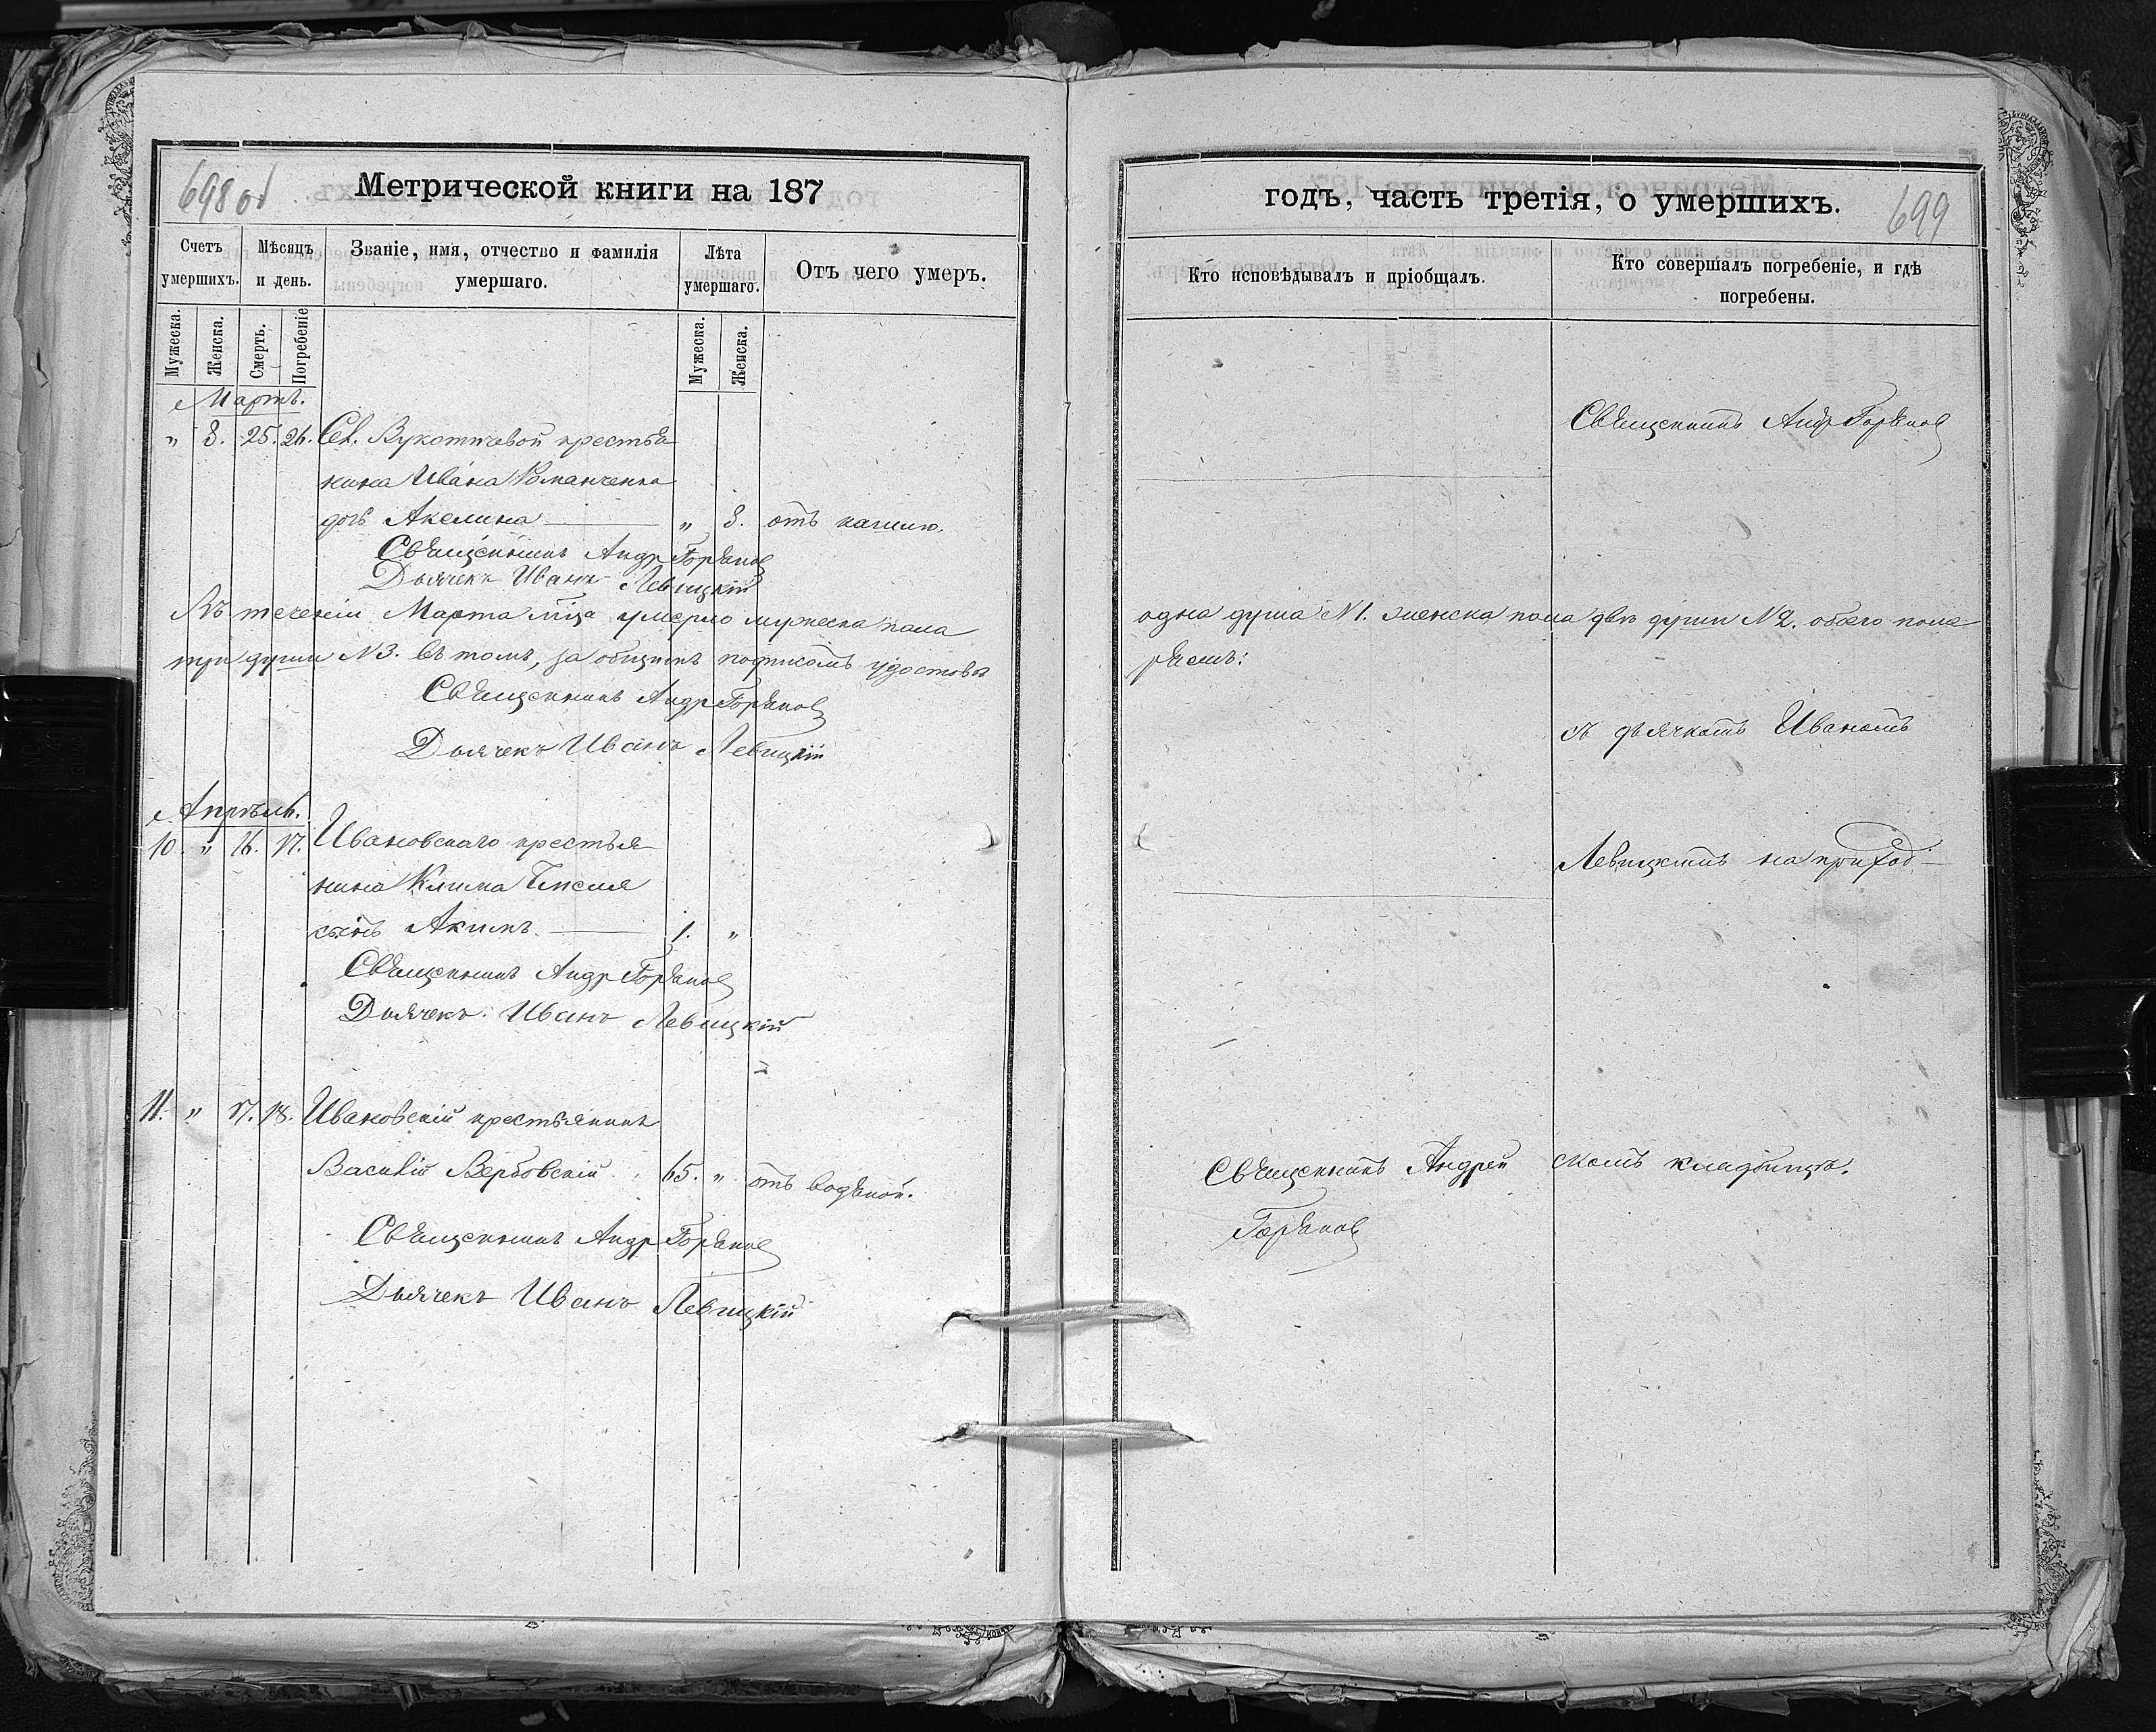 698 об
Метрической книги на 187
Счетъ умершихъ.
Мѣсяцъ и день.
Званіе, имя, отчество и фамилія умершаго.
Лѣта умершаго.
Отъ чего умеръ.
Мужеска.
Женска.
Смерть.
Погребеніе
Мужеска.
Женска.
Мартъ.
" 8. 25. 26. Сел. крестья
нина Ивана Романченка
дочь Акелина " 8. отъ кашлю.
Священникъ Андр Горянов
Дьячекъ Иванъ Левицкій
Въ теченіи Марта мца умерло мужеска пола
три души №3. въ томъ, за общимъ подписомъ удостовѣ
Священникъ Андр Горянов
Дьячекъ Иванъ Левицкій
Апрѣль.
10. " 16. 17. Ивановскаго крестья
нина Клима
сынъ Акимъ 1. "
Священникъ Андр Горянов
Дьячекъ Иванъ Левицкій
11. " 17. 18. Ивановскій крестьянинъ
Василій Вербовскій 65. " отъ водяной.
Священникъ Андр Горянов
Дьячекъ Иванъ Левицкій
годъ, часть третія, о умершихъ.
699
Кто исповѣдывалъ и пріобщалъ.
Кто совершалъ погребеніе, и гдѣ погребены.
Священникъ Андр Горянов
одна душа №1. женска пола двѣ души №2. обоего пола
ряемъ:
съ дьячкомъ Иваномъ
Левицкимъ на приход-
Священникъ Андрей
Горянов
скомъ кладбищѣ.